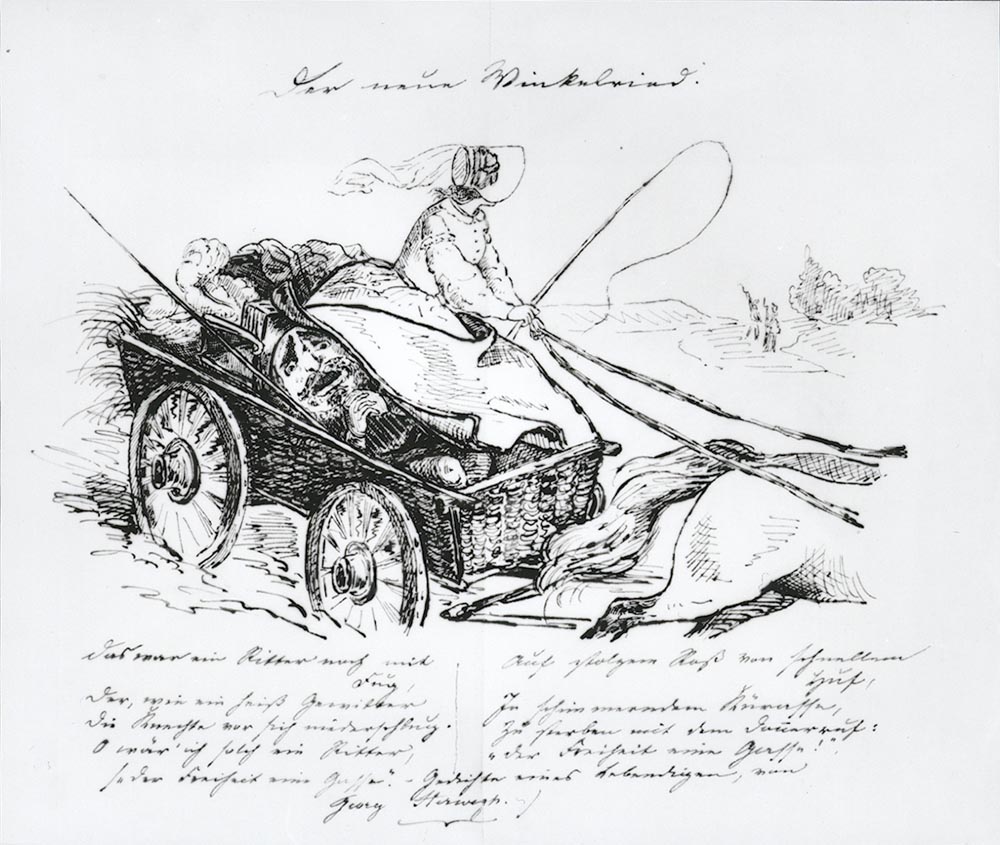 Der neue Winkelried.
Das war ein Ritter noch mit
Fug,
Der, wie ein heiß Gewitter
Die Knechte vor sich niederschlug.
O wär' ich solch ein Ritter,
Auf stolzem Roß von schnellem
Huf,
In schimmerndem Kürasse,
Zu sterben mit dem Donnerruf:
"der Freiheit eine Gasse!"
("der Freiheit eine Gasse." – Gedichte eines Lebendigen, von
Georg Herwegh. –)